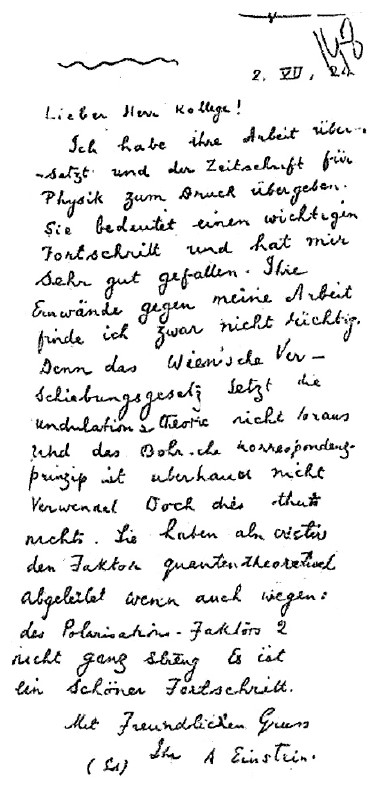 2. VII. 24
Lieber Herr Kollege!
Ich habe ihre Arbeit über-
setzt und der Zeitschrift für
Physik zum Druck übergeben.
Sie bedeutet einen wichtigen
Fortschritt und hat mir
sehr gut gefallen. Ihre
Einwände gegen meine Arbeit
finde ich zwar nicht richtig.
Denn das Wien'sche Ver-
schiebungsgesetz setzt die
Undulations theorie nicht voraus
und das Bohr'sche Korrespondenz-
prinzip ist überhaupt nicht
verwendet Doch dies thut
nichts. Sie haben als erster
den Faktor quantentheoretisch
abgeleitet wenn auch wegen
des Polarisations-Faktors 2
nicht ganz streng Es ist
ein schöner Fortschritt.
Mit Freundlichen Gruss
Ihr A Einstein.
(Sd)